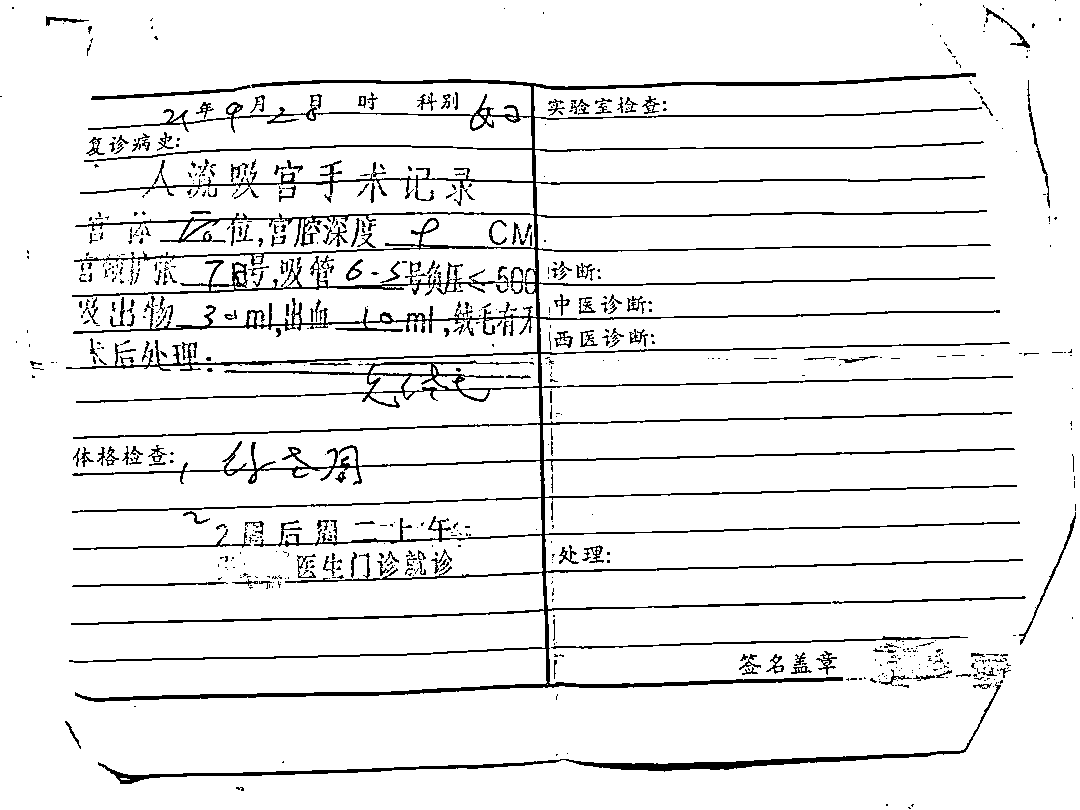 21年9月2日 时 科别 妇
复诊病史:
人流吸宫手术记录
宫体 位,宫腔深度 9 CM
宫颈扩张 7 号,吸管 6-5号负压<-500
吸出物 30ml,出血 10ml,绒毛有无
术后处理:
体格检查:
1、休息2周
2 2周后周二上午
医生门诊就诊
实验室检查:
诊断:
中医诊断:
西医诊断:
处理:
签名盖章